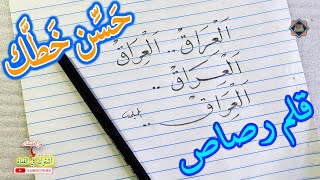 حَسِّن خَطَّكَ
اَلْعِرَاقْ .. اَلْعِرَاقْ
اَلْعِرَاقْ ..
اَلْعِرَاقْ ..
قلم رصاص
SUBSCRIBE